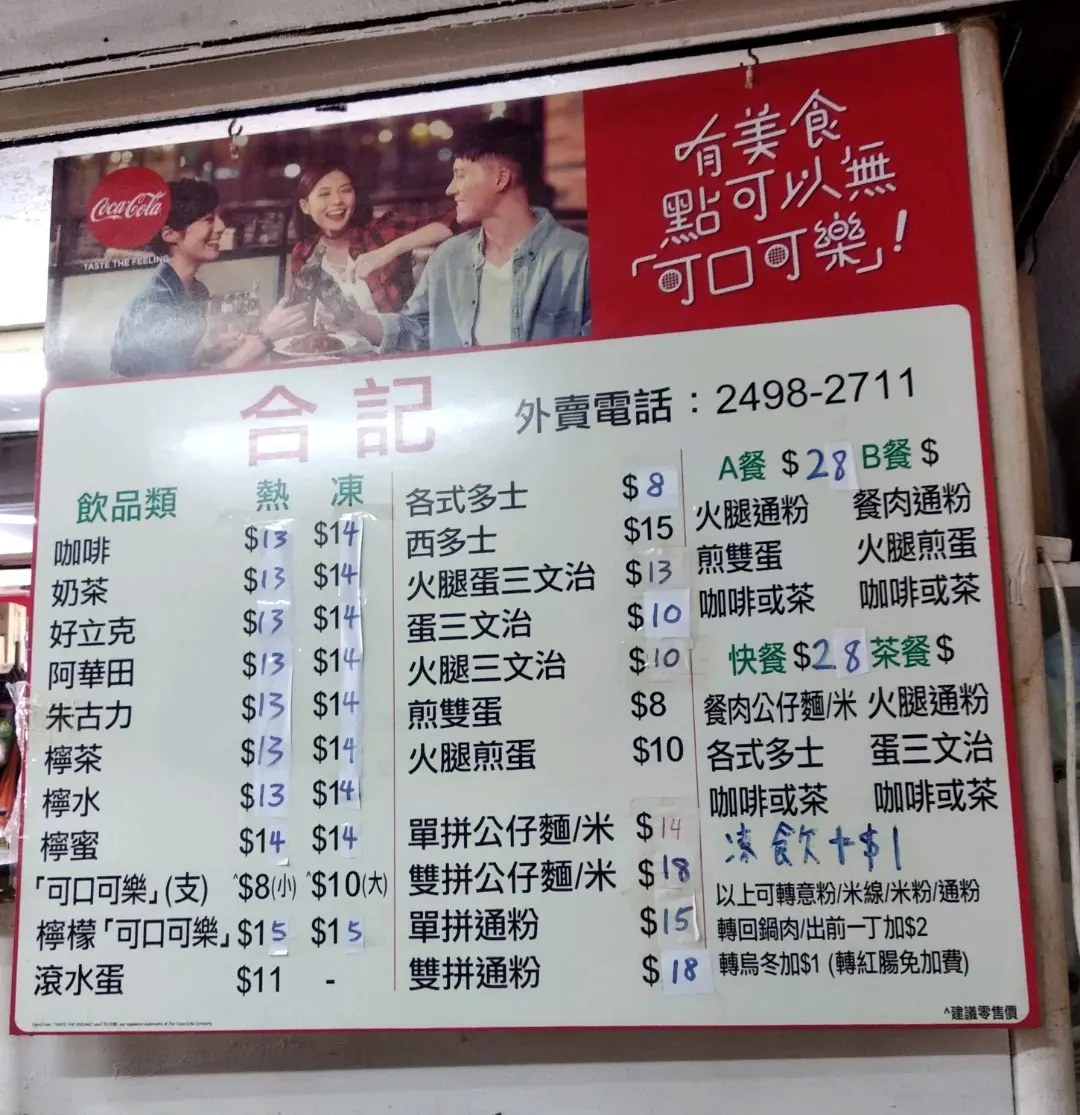 Coca-Cola
TASTE THE FEELING
有美食
點可以無
「可口可樂」!
合記 外賣電話:2498-2711
飲品類 熱 凍
咖啡 $13 $14
奶茶 $13 $14
好立克 $13 $14
阿華田 $13 $14
朱古力 $13 $14
檸茶 $13 $14
檸水 $13 $14
檸蜜 $14 $14
「可口可樂」(支) ^$8(小) ^$10(大)
檸檬「可口可樂」 $15 $15
滾水蛋 $11 -
各式多士 $8
西多士 $15
火腿蛋三文治 $13
蛋三文治 $10
火腿三文治 $10
煎雙蛋 $8
火腿煎蛋 $10
單拼公仔麵/米 $14
雙拼公仔麵/米 $18
單拼通粉 $15
雙拼通粉 $18
A餐 $28 B餐 $
火腿通粉 餐肉通粉
煎雙蛋 火腿煎蛋
咖啡或茶 咖啡或茶
快餐 $28 茶餐 $
餐肉公仔麵/米 火腿通粉
各式多士 蛋三文治
咖啡或茶 咖啡或茶
凍飲+$1
以上可轉意粉/米線/米粉/通粉
轉回鍋肉/出前一丁加$2
轉烏冬加$1 (轉紅腸免加費)
^建議零售價